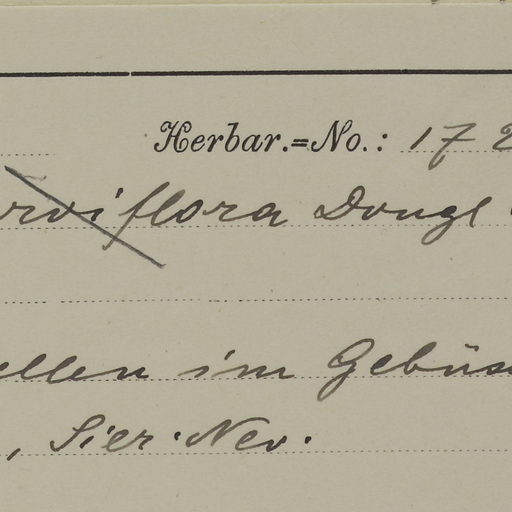 Herbar.=No.: 17
rviflora Dougl
ellen im Gebüs
, Sier. Nev.